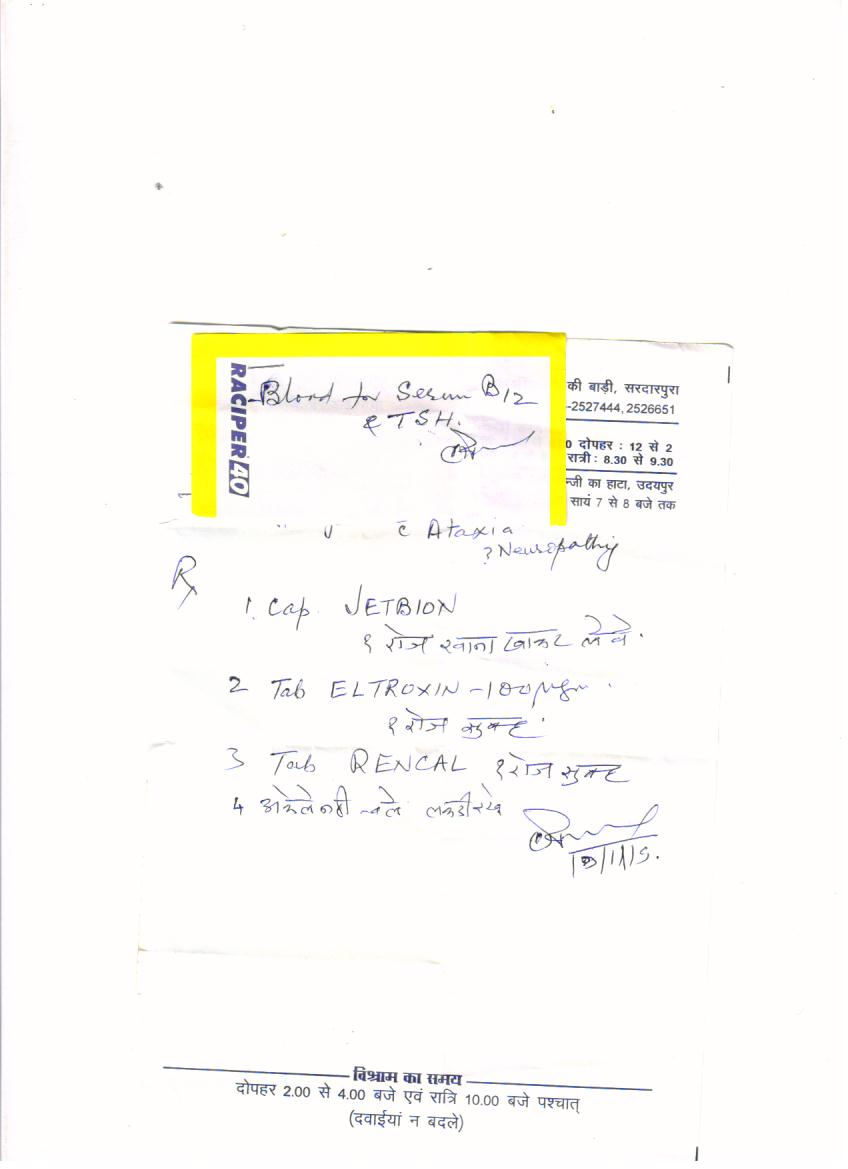 RACIPER 40
Blood for Serum B12
& TSH.
की बाड़ी, सरदारपुरा
-2527444, 2526651
0 दोपहर : 12 से 2
रात्री : 8.30 से 9.30
न्जी का हाटा, उदयपुर
सायं 7 से 8 बजे तक
c̄ Ataxia
? Neuropathy
Rx
1. Cap. JETBION
१ रोज खाना खाकर लेवे.
2 Tab ELTROXIN -100 µgm.
१ रोज सुबह
3 Tab RENCAL १ रोज सुबह
4 अकेले नही चले लकडी रखे
विश्राम का समय
दोपहर 2.00 से 4.00 बजे एवं रात्रि 10.00 बजे पश्चात्
(दवाईयां न बदले)